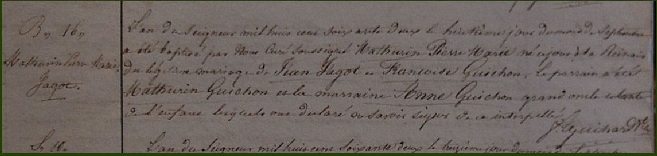 B. 16.
Mathurin Pierre Marie
Jagot.
L'an du Seigneur mil huit cent soixante deux le huitième jour du mois de Septembre
a été baptisé par Nous Curé soussigné Mathurin Pierre Marie né ce jour
du légitime mariage de Jean Jagot et Françoise Guichon, le parrain a été
Mathurin Guichon et la marraine Anne Guichon grand oncle et tante
de l'enfant lesquels ont déclaré ne savoir signer de ce interpellés
L'an du Seigneur mil huit cent soixante deux le